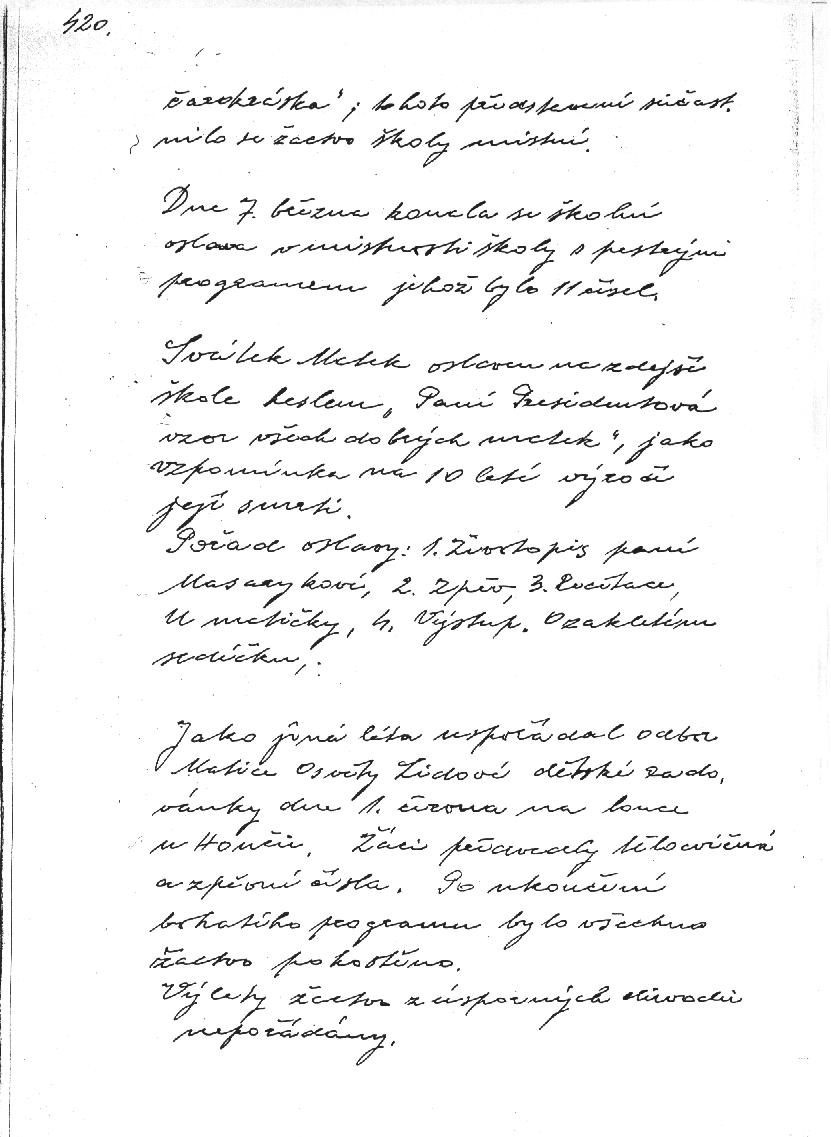 420.
čarokráska"; tohoto představení súčast-
nilo se žactvo školy místní.
Dne 7. března konala se školní
oslava v místnosti školy s pestrými
programem jehož bylo 11 čísel.
Svátek Matek oslaven na zdejší
škole heslem „Paní Presidentová
vzor všech dobrých matek", jako
vzpomínka na 10 leté výročí
její smrti.
Pořad oslavy: 1. Životopis paní
Masarykové, 2. Zpěv, 3. Recitace,
U matičky, 4. Výstup. O zakletém
srdíčku,.
Jako jiná léta uspořádal odbor
Matice Osvěty Lidové dětské rado-
vánky dne 1. června na louce
u Hončů. Žáci předvedly tělocvičná
a zpěvní čísla. Po ukončení
bohatého programu bylo všechno
žactvo pohostěno.
Výlety žactva z úsporných důvodů
nepořádány.